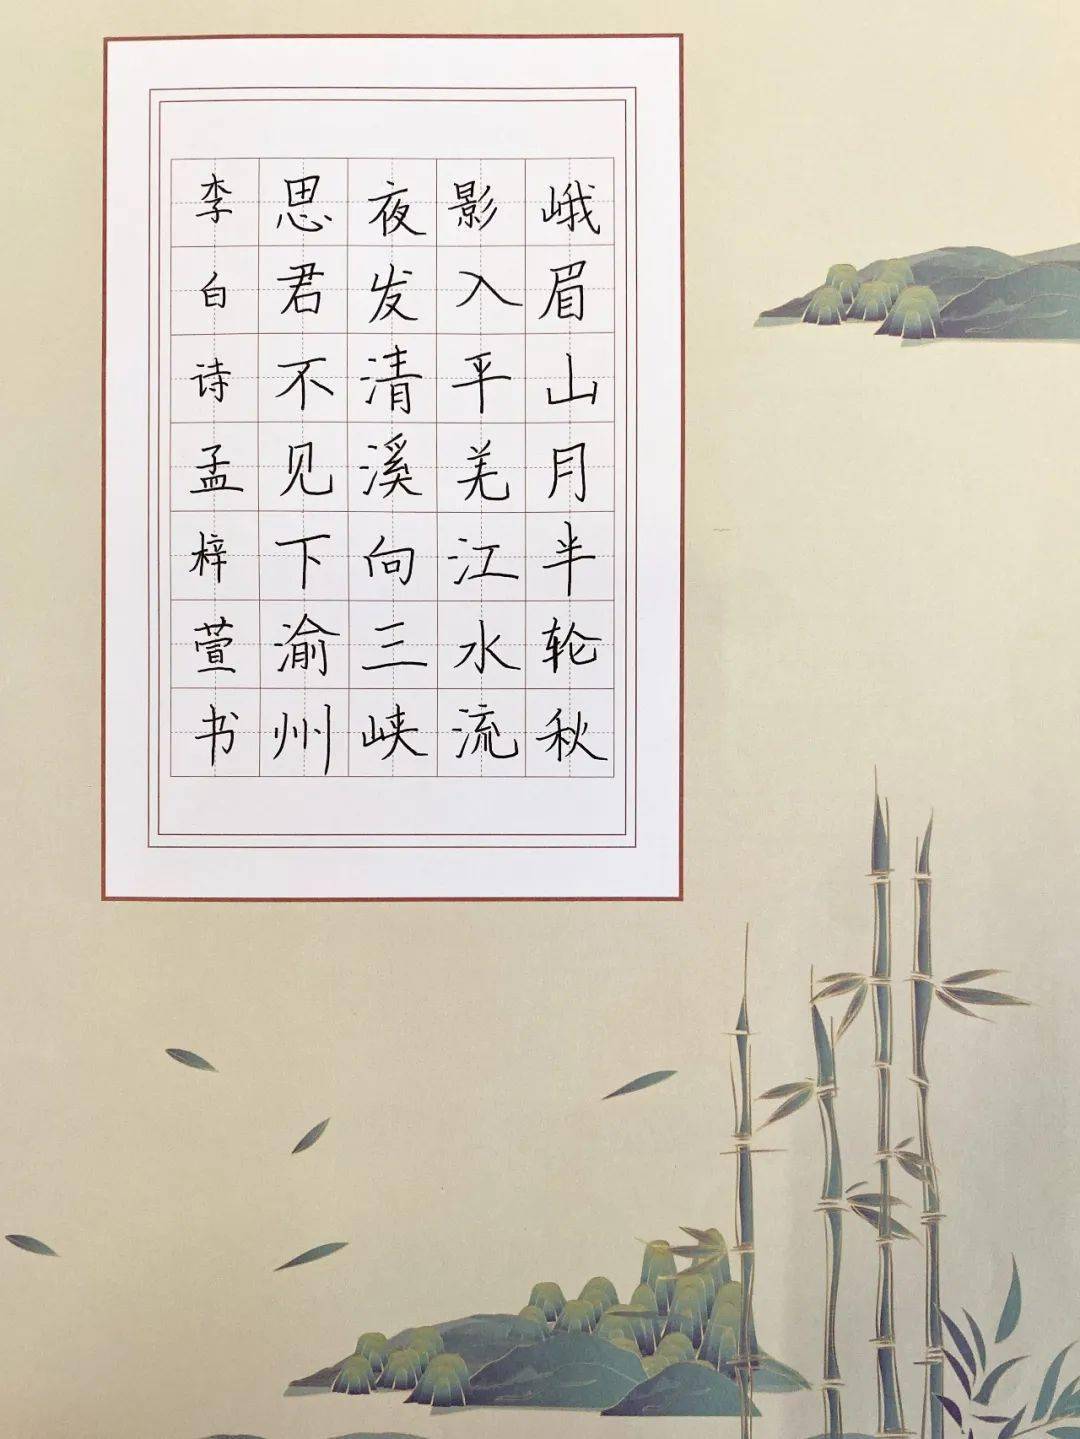 峨眉山月半轮秋
影入平羌江水流
夜发清溪向三峡
思君不见下渝州
李白诗孟梓萱书